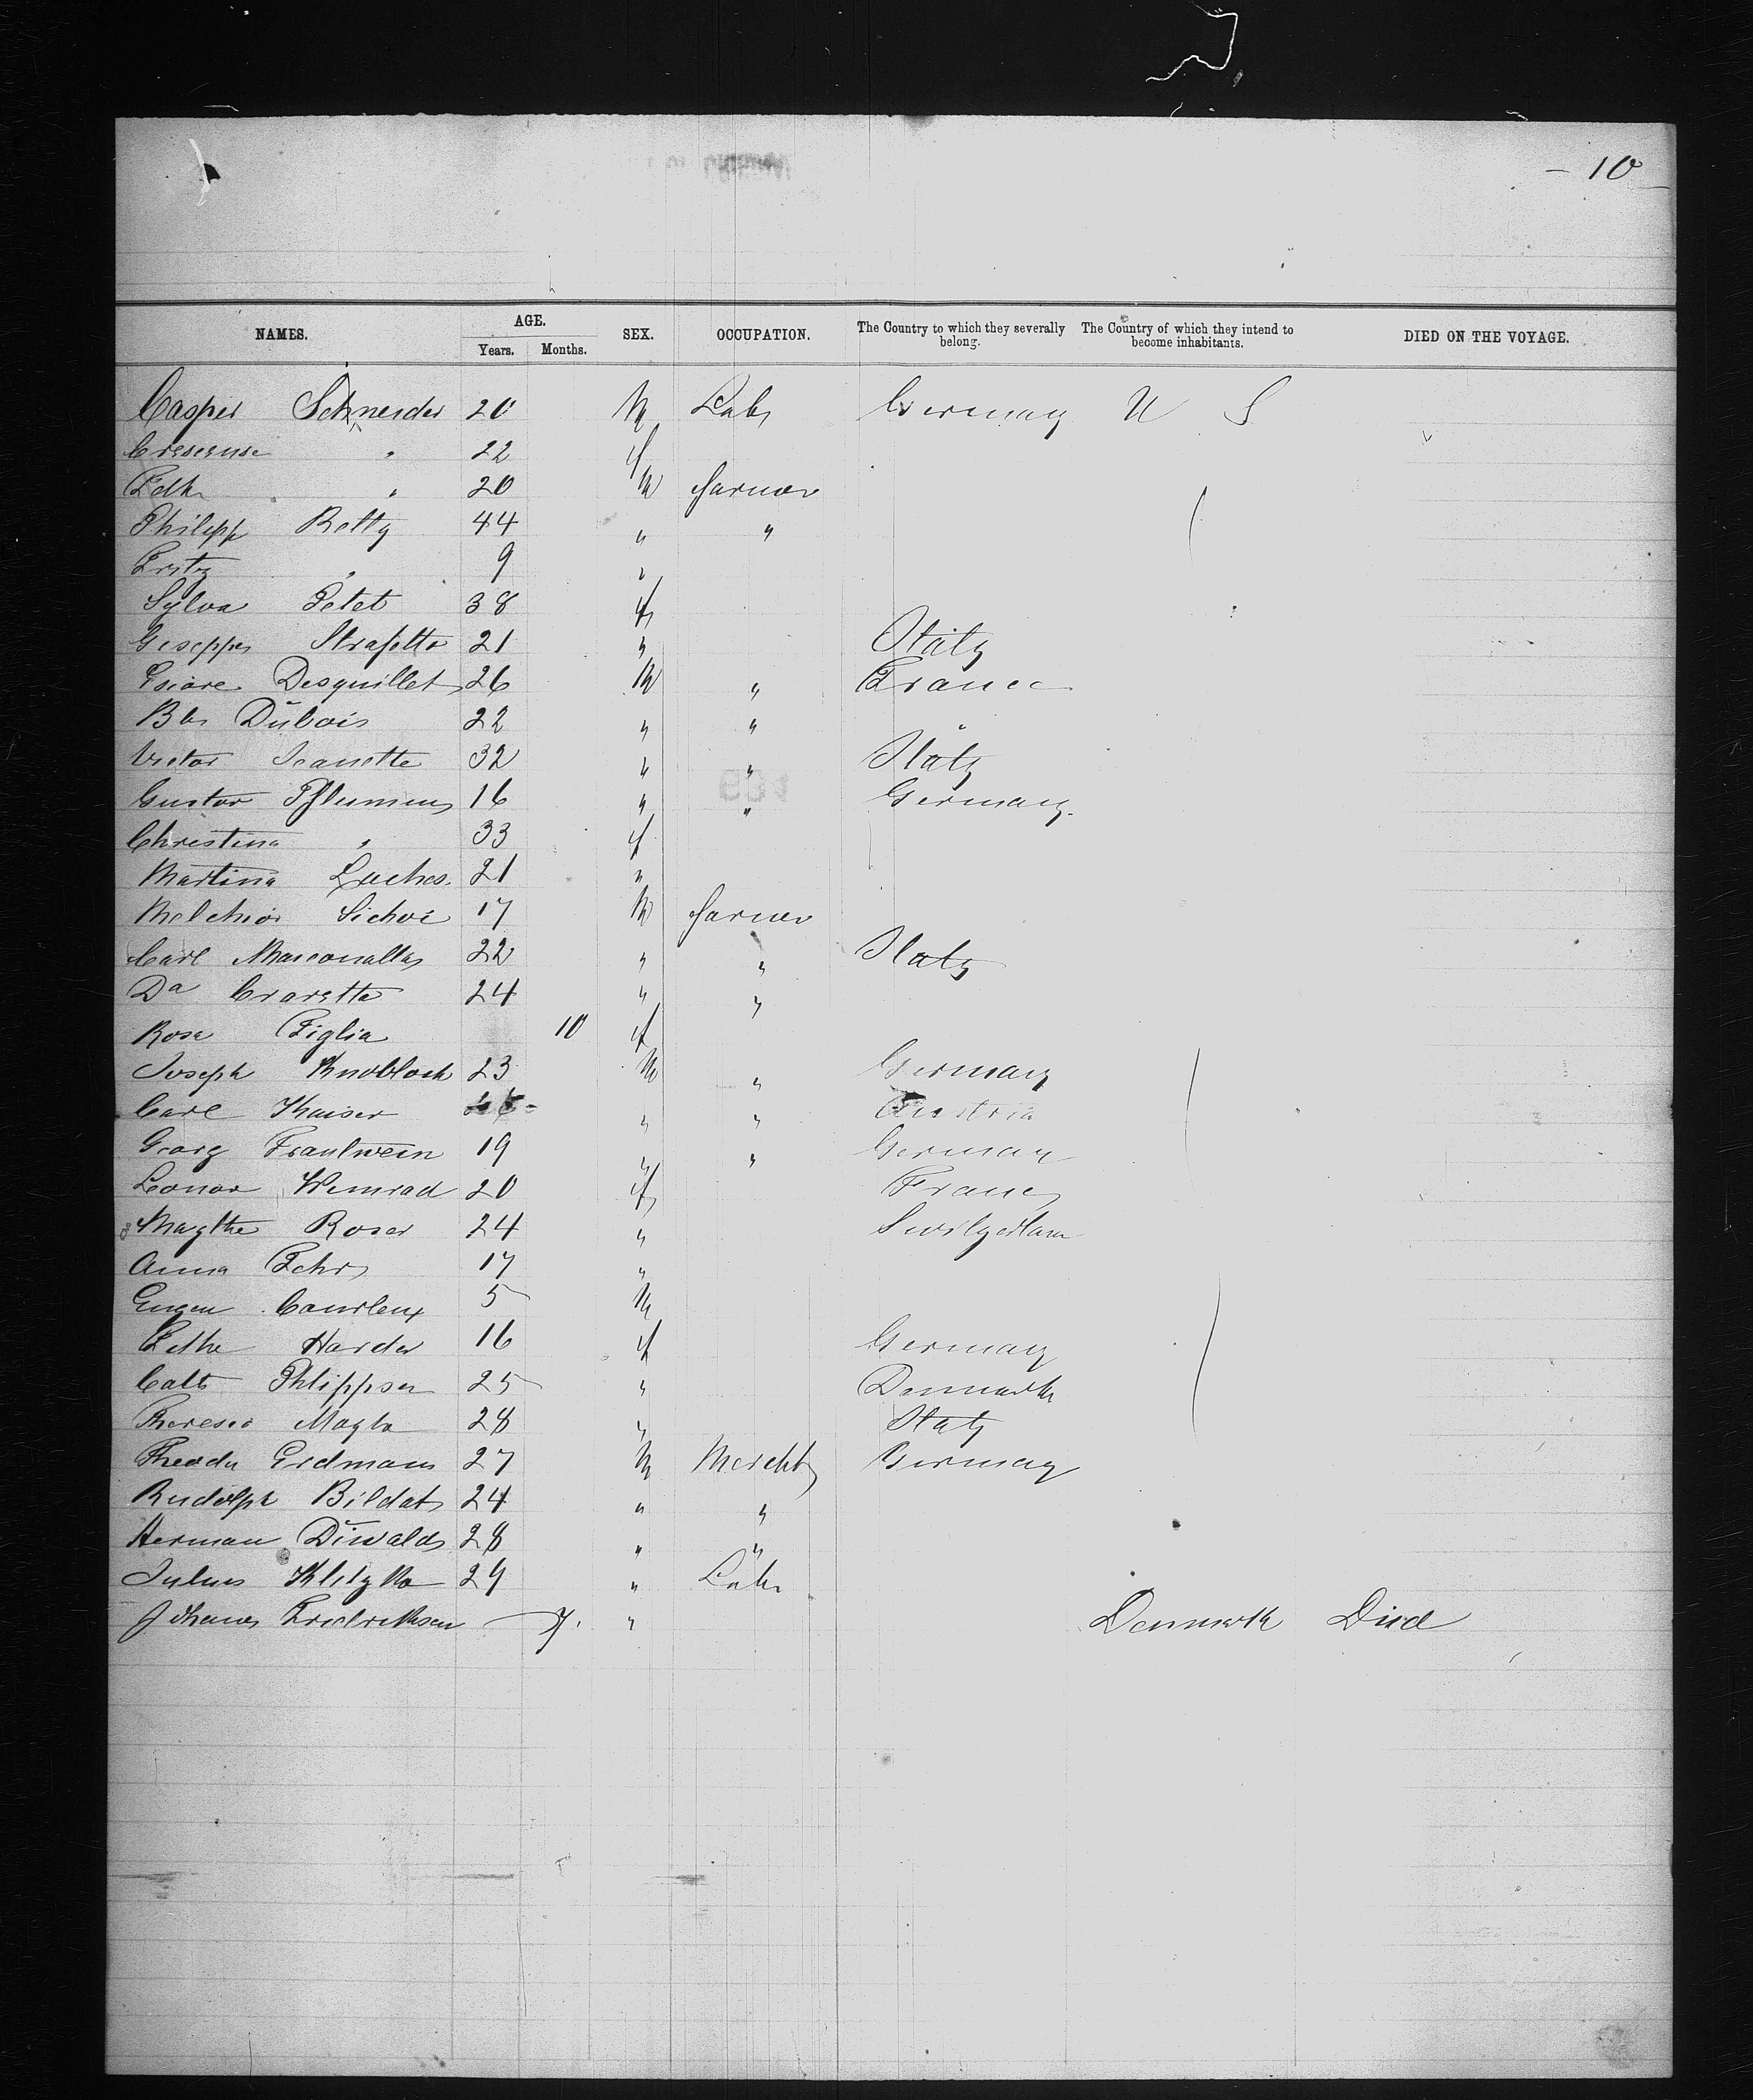 - 10 -
NAMES. AGE. Years. Months. SEX. OCCUPATION. The Country to which they severally belong. The Country of which they intend to become inhabitants. DIED ON THE VOYAGE.
Casper Schneider 20 M Labr Germany U S
Cresense " 22 f
20 M farmer
Philipp Retty 44 " "
Fritz " 9 "
Sylva Petet 38 f
Geseppe Strafetto 21 " Italy
Desquillet 26 M " France
Dŭbois 22 " " "
Victor Jeanette 32 " " Italy
Gustav 16 " " Germany
Christina " 33 f
Martina Luchs 21 "
Melchior Sichoi 17 M farmer
Carl Marconalla 22 " " Italy
Da Craretta 24 " "
Rosa Figlia 10 f
Joseph Knobloch 23 M " Germany
Carl Kaiser " " Austria
Georg Trautwein 19 " " German
Leonor Wemrad 20 f France
Roser 24 " Switzerlan
Anna Fehr 17 "
Eugen 5 M
Harder 16 f Germany
Cath Philippsen 25 " Denmark
Theresia Magla 28 " Italy
Theodu Erdmann 27 M Mercht Germany
Rudolph Bildat 24 " "
Herman Dŭwald 28 " "
Julius Klitzka 29 " Labr
Johannes Fredriksen — 7. " Denmark Died